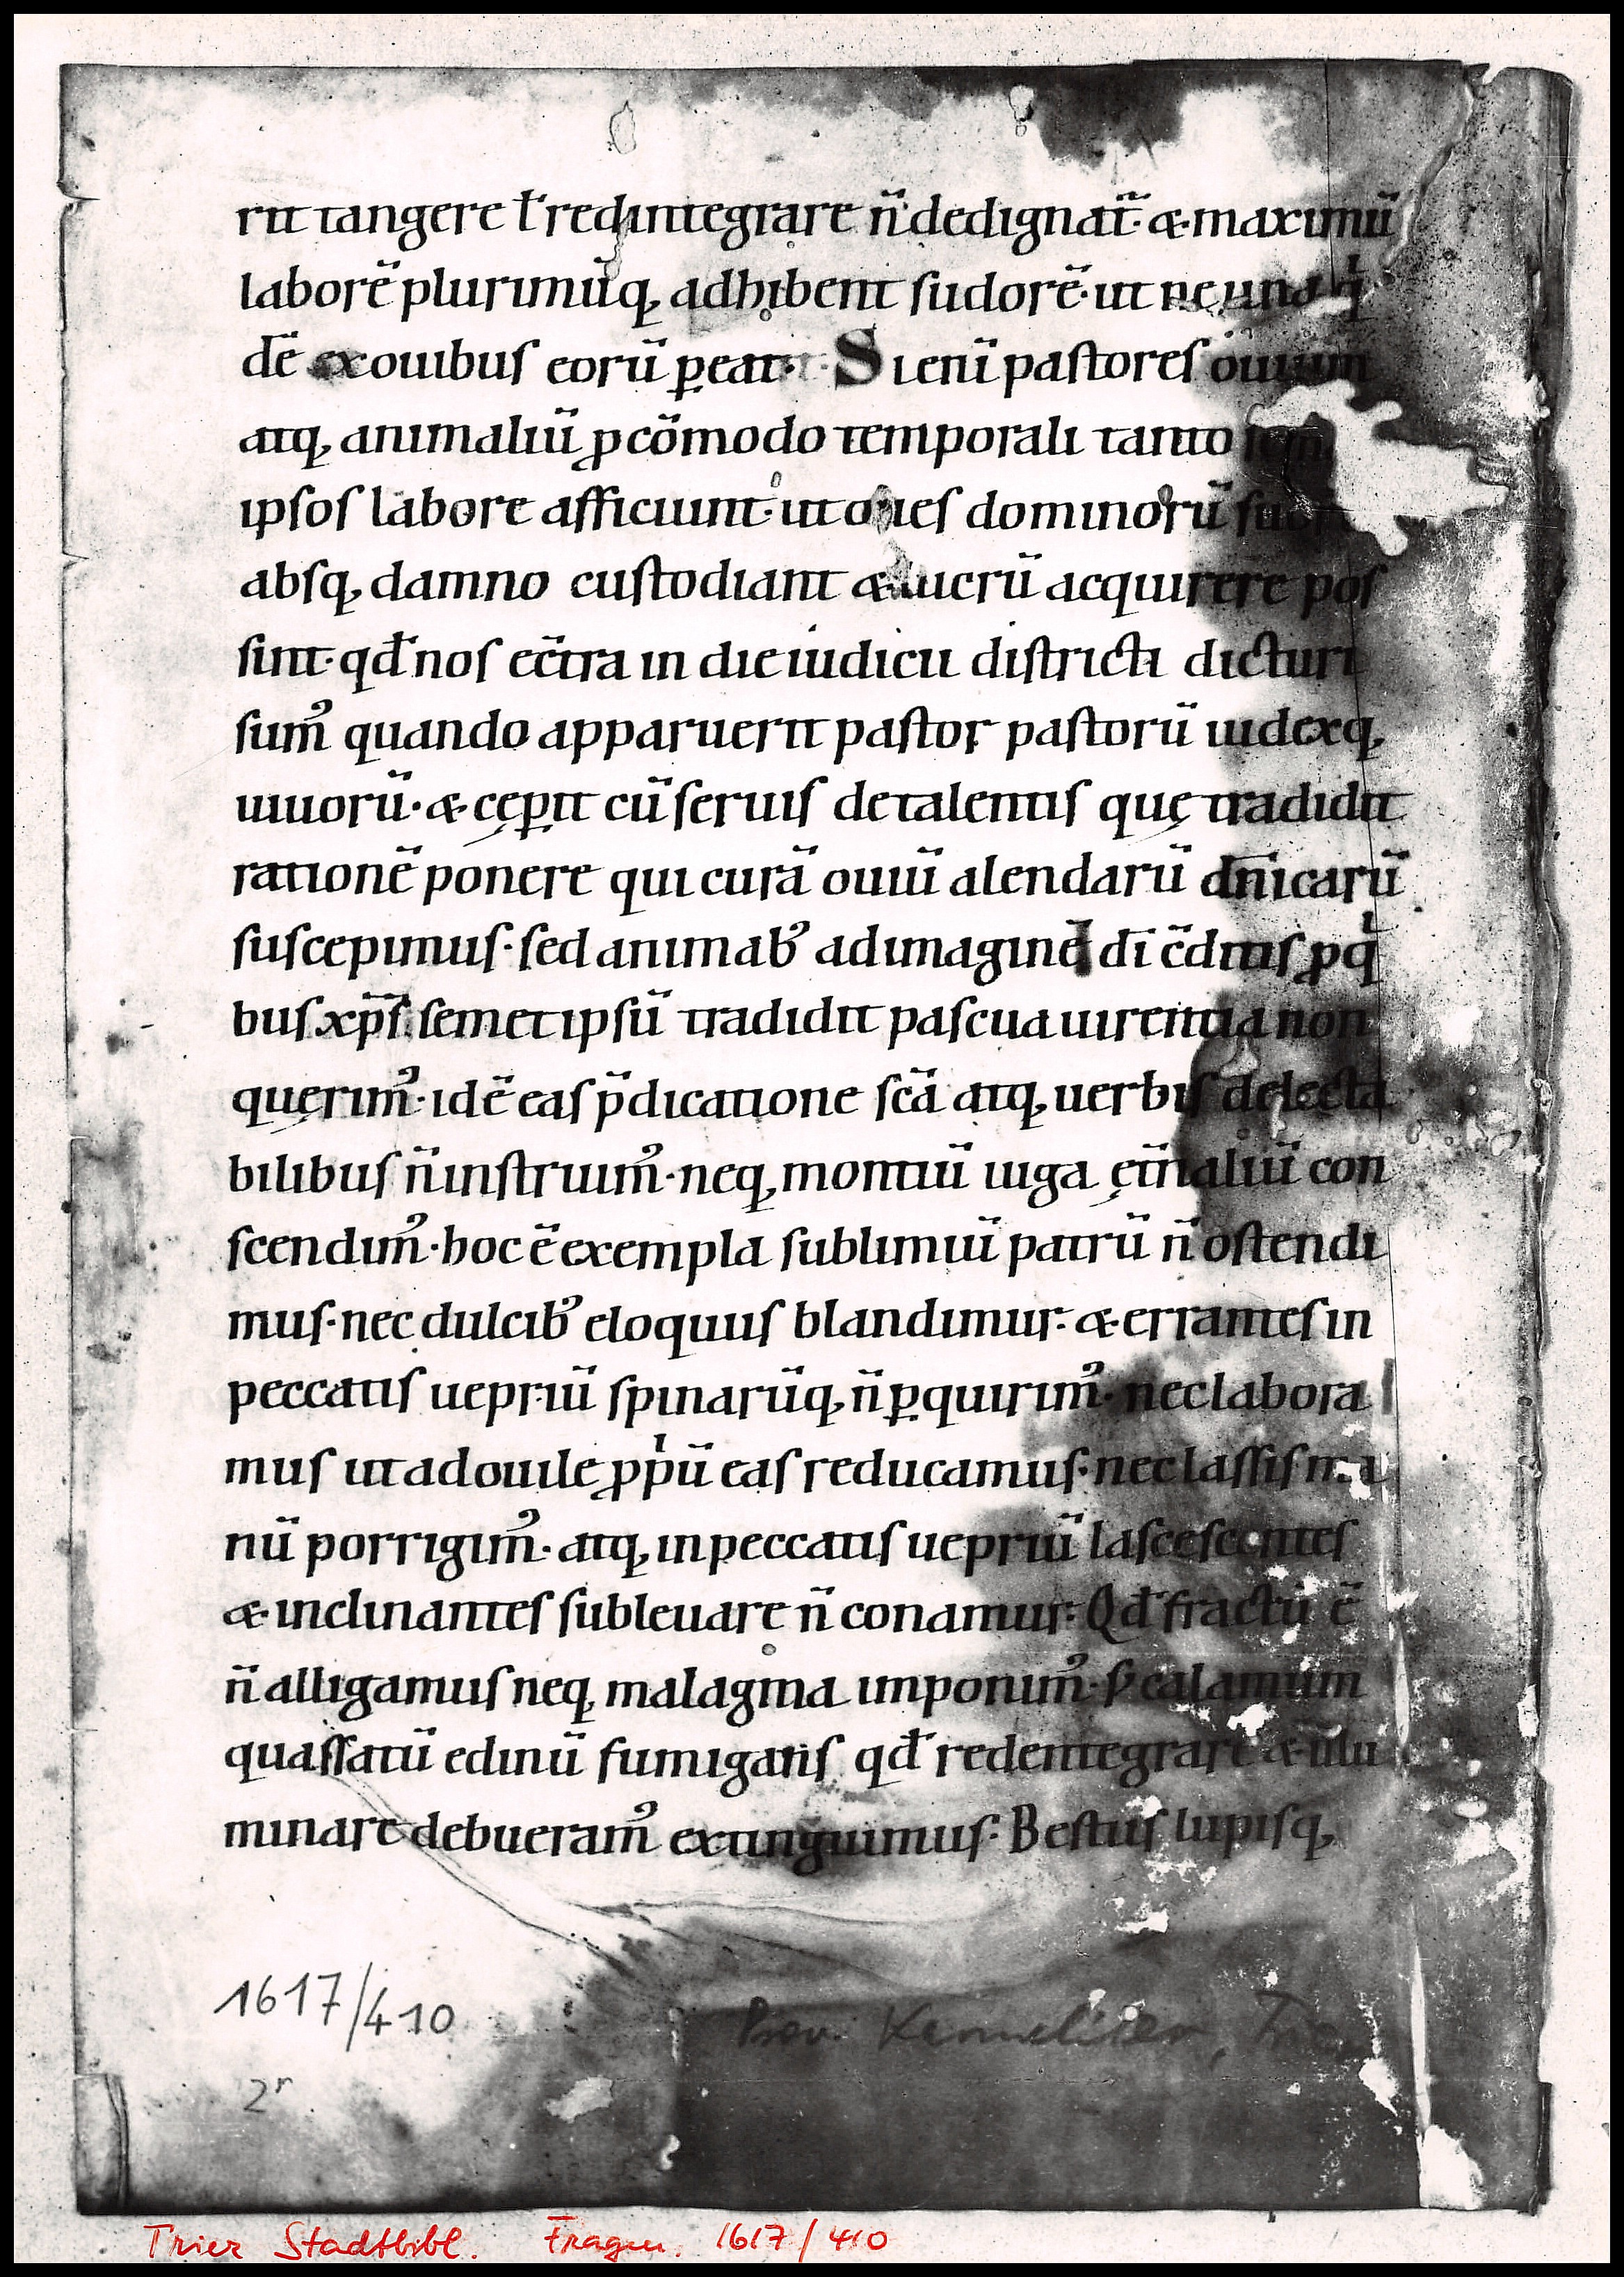 rit tangere ł redintegrare n̄ dedignat̄· & maximū
laborē plurimūq, adhibent sudorē· ut ne una q
dē ex ouibus eorū ꝑeat· Si enī pastores ouium
atq, animaliū ꝓ cōmodo temporali tanto
ipsos labore afficiunt· ut oues dominorū
absq, damno custodiant & lucrū acquirere pos
sint· qđ nos ec̄tra in die iudicii districti dicturi
sum᾽ quando apparuerit pastor pastorū iudexq,
uiuorū· & cęꝑit cū seruis de talentis quę tradidit
rationē ponere qui curā ouiū alendarū dn̄icarū
suscepimus· sed animab᾽ ad imaginē dī c̄ditis ꝓ q
bus xp̄s semet ipsū tradidit pascua uirentia non
quęrim᾽· idē eas p̄dicatione sc̄a atq, uerbis delecta
bilibus n̄ instruim᾽· neq, montiū iuga ęt̄naliū con
scendim᾽· hoc ē exempla sublimiū patrū n̄ ostendi
mus· nec dulcib᾽ eloquiis blandimur· & errantes in
peccatis uepriū spinarūq, n̄ ꝑquirim᾽· nec labora
mus ut ad ouile ꝓpͥū eas reducamus· nec lassis ma
nū porrigim᾽· atq, in peccatis uepriū lascescentes
& inclinantes subleuare n̄ conamur· Qđ fractū ē
n̄ alligamus neq, malagma imponim᾽· s; calamum
quassatū edinū fumigatis qđ redentegrare & illu
minare debueram᾽ extinguimus· Bestiis lupisq,
1617/410
Prov. Karmeliter,
2r
Trier Stadtbibl. Fragm. 1617/410